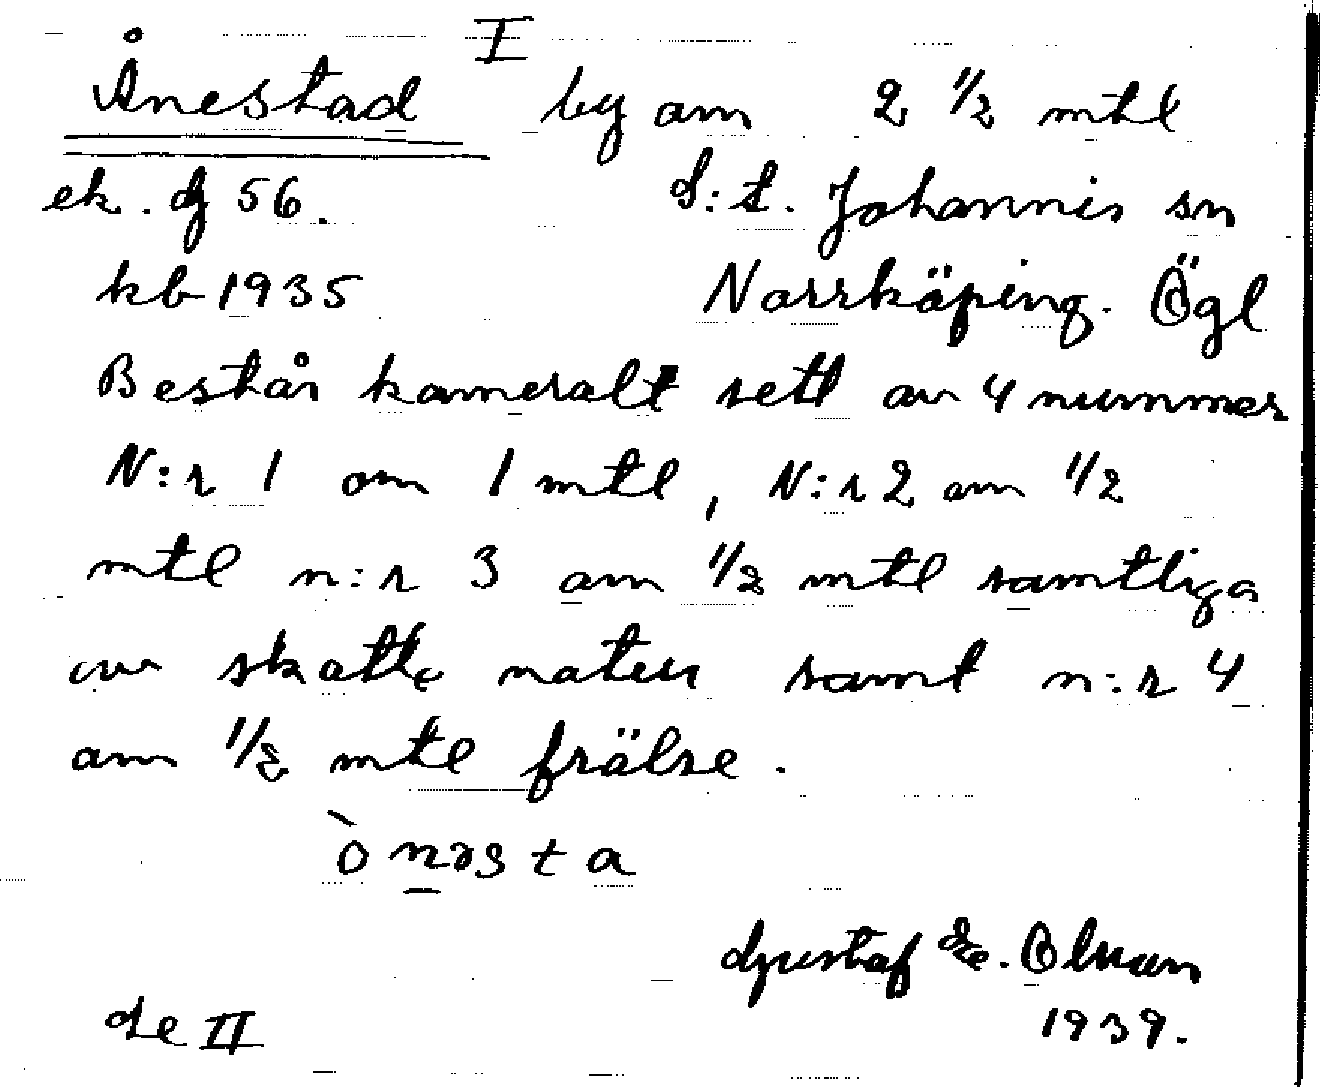 I
Ånestad by om 2 1/2 mtl
ek. dj 56. S:t. Johannis sn
kb 1935 Norrköping. Ögl
Består kameralt sett av 4 nummer
N:r 1 om 1 mtl, N:r 2 om 1/2
mtl n:r 3 om 1/2 mtl samtliga
av skatte natur samt n:r 4
om 1/2 mtl frälse.
ònəsta
Gustaf
1939.
Se II